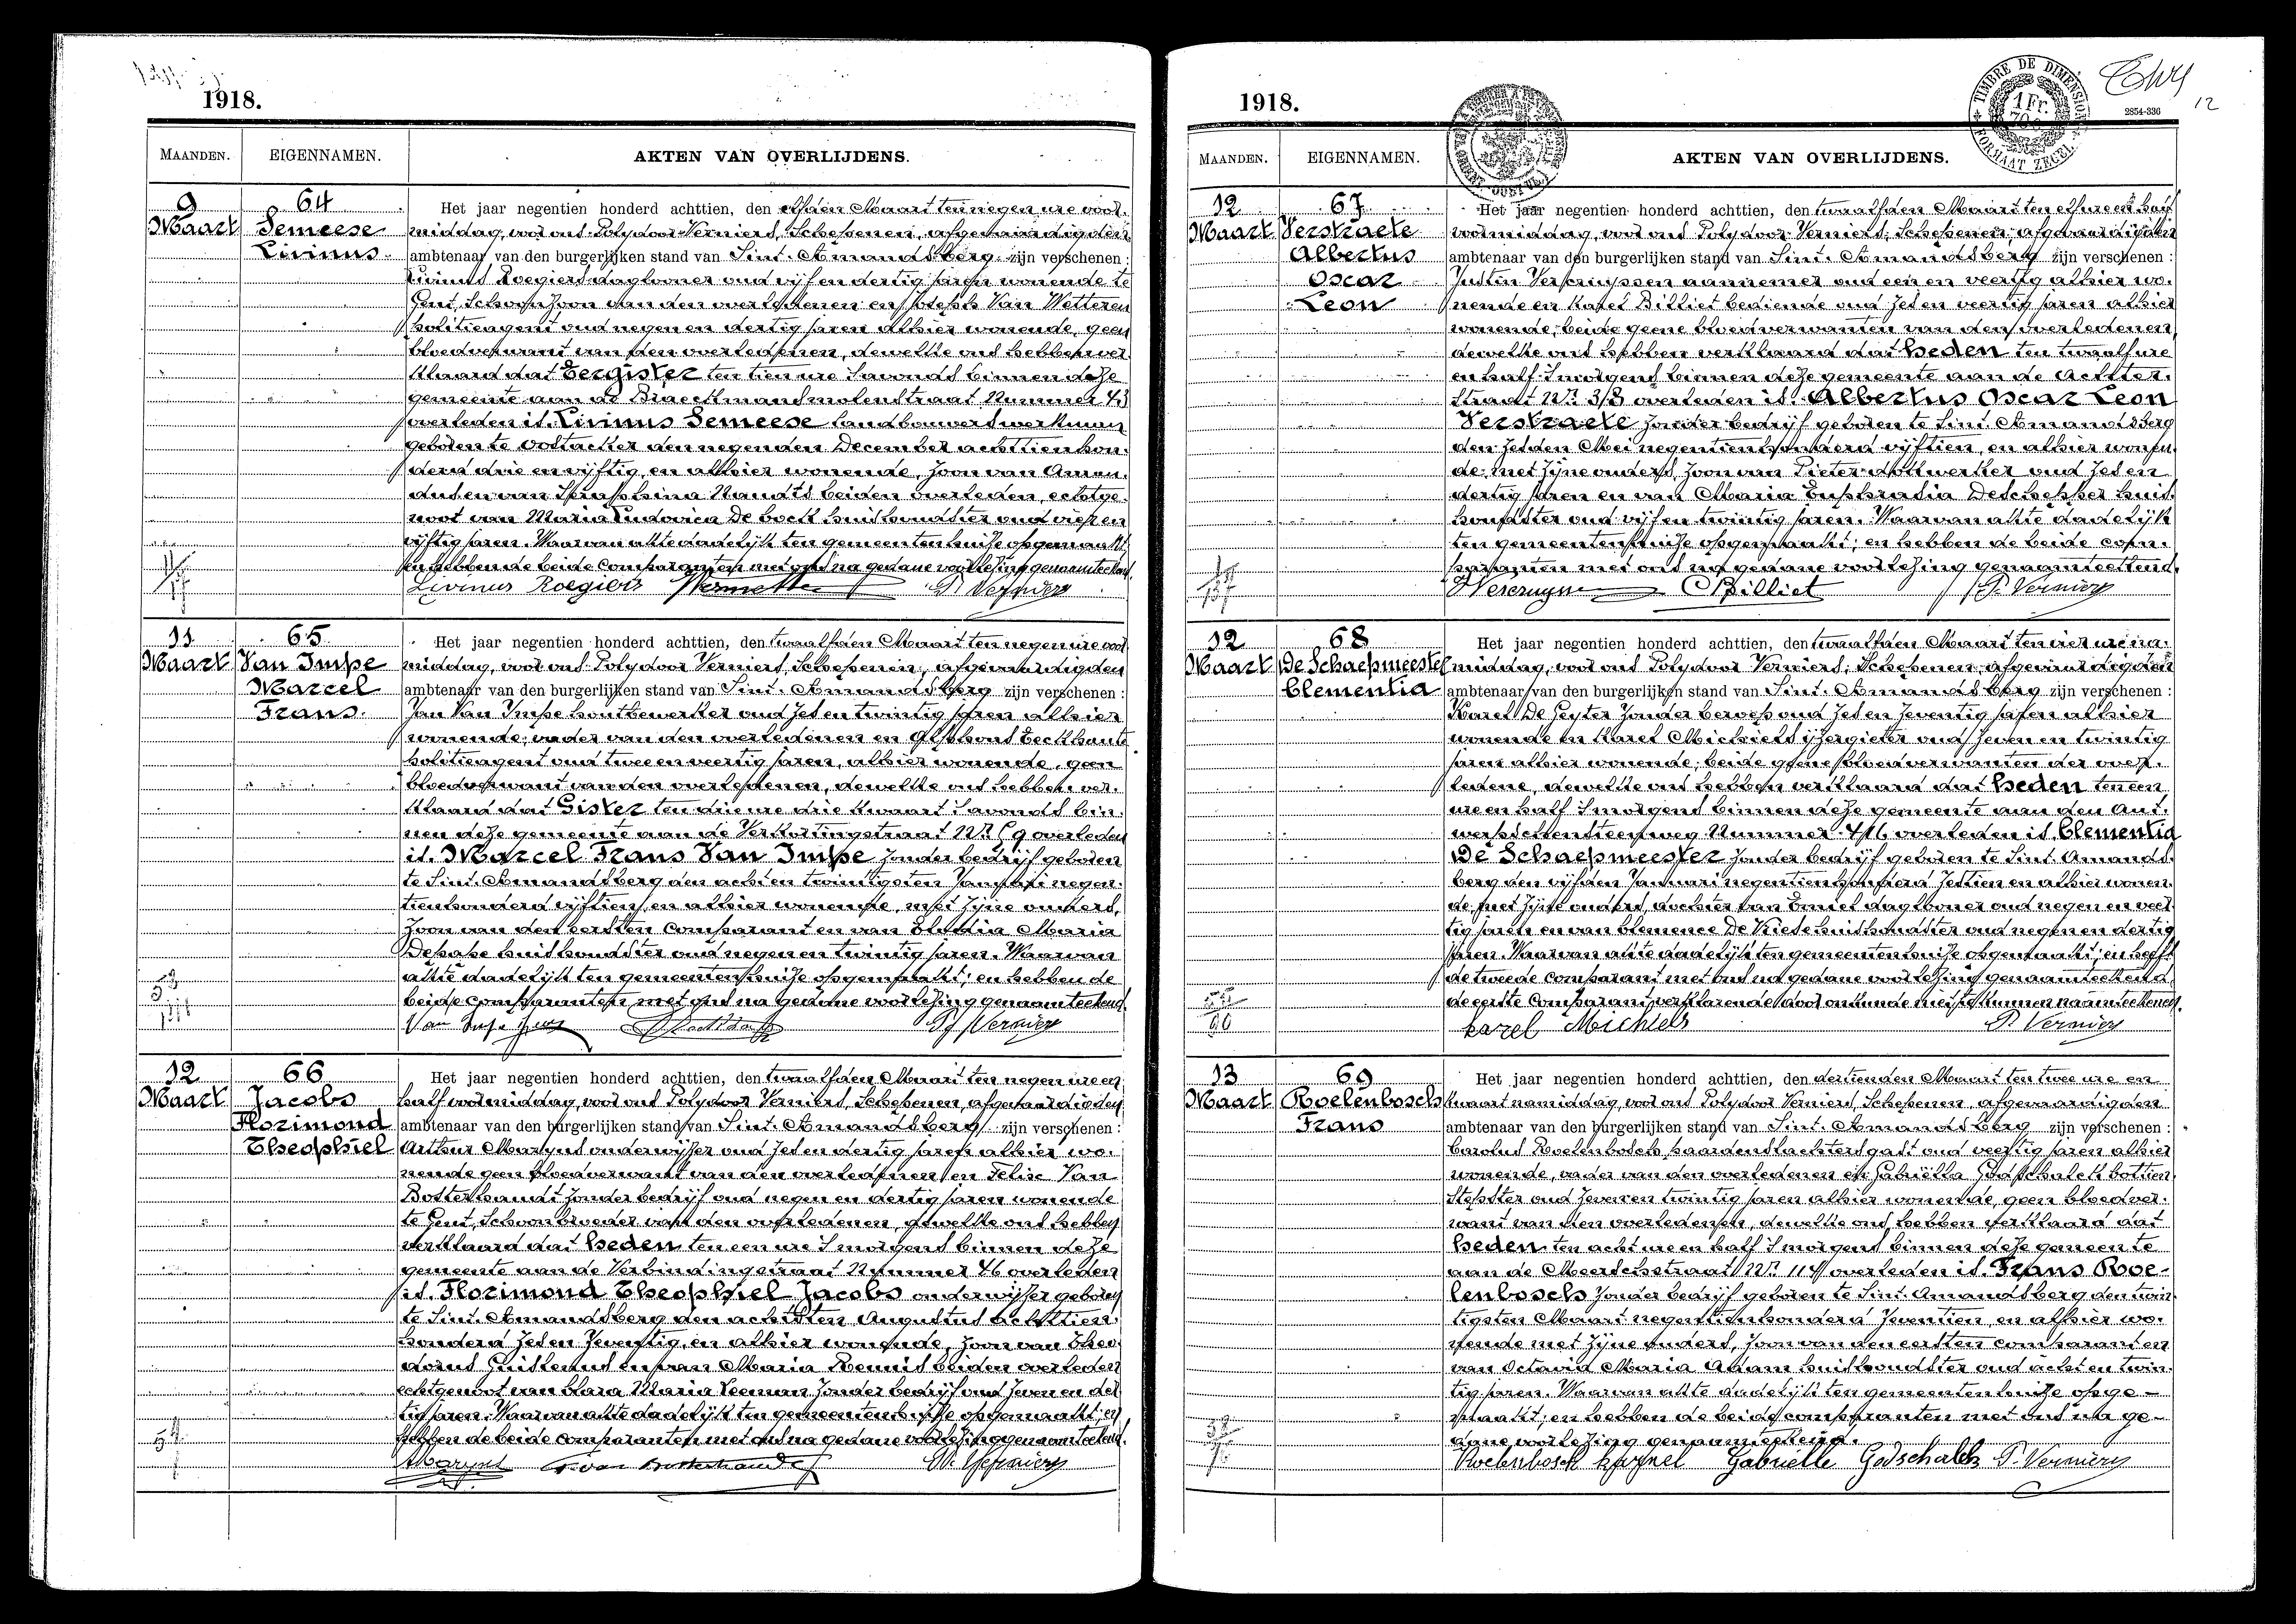 1918.
MAANDEN. EIGENNAMEN. AKTEN VAN OVERLIJDENS.
9 Maart
64
Semeese
Livinus
Het jaar negentien honderd achttien, den elfden Maart ten negen ure voor-
middag, voor ons Polydoor Verniers, Schepenen, afgevaardigden
ambtenaar van den burgerlijken stand van Sint-Amandsberg zijn verschenen :
Livinus Roegiers daglooner oud vijf en dertig jaren wonende te
Gent, Schoonzoon van den overledenen en Joseph Van Wetteren
politieagent oud negen en dertig jaren alhier wonende, geen
bloedverwant van den overledenen, dewelke ons hebben ver-
klaard dat Eergister ten tien ure s'avonds binnen deze
gemeente aan de Braeckmansmolenstraat Nummer 43
overleden is. Livinus Semeese landbouwerswerkman
geboren te Oostacker den negenden December achttien hon-
derd drie en vijftig, en alhier wonende, zoon van Aman-
dus en van Seraphina Naudts beiden overleden, echtge-
noot van Maria Ludovica De bock huishoudster oud vier en
vijftig jaren. Waarvan akte dadelijk ten gemeentenhuize opgemaakt
en hebben de beide Comparanten met ons na gedane voorlezing genaamteekend.
Livinus Roegiers P. Verniers
11 Maart
65
Van Impe
Marcel
Frans
Het jaar negentien honderd achttien, den twaalfden Maart ten negen ure voor
middag, voor ons Polydoor Verniers, Schepenen, afgevaardigden
ambtenaar van den burgerlijken stand van Sint-Amandsberg zijn verschenen :
Jan Van Impe houtbewerker oud zes en twintig jaren alhier
wonende, vader van den overledenen en Alphons Eeckhaute
politieagent oud twee en veertig jaren, alhier wonende, geen
bloedverwant van den overledenen, dewelke ons hebben ver-
klaard dat Gister ten drie ure drie kwaart s'avonds bin-
nen deze gemeente aan de Verkortingstraat Nr 59 overleden
is. Marcel Frans Van Impe zonder bedrijf geboren
te Sint-Amandsberg den acht en twintigsten Januari negen-
tienhonderd vijftien, en alhier wonende, met zijne ouders,
Zoon van den eersten Comparant en van Elodia Maria
Depape huishoudster oud negen en twintig jaren. Waarvan
akte dadelijk ten gemeentenhuize opgemaakt; en hebben de
beide comparanten met ons na gedane voorlezing genaamteekend.
Van Impe Jan P. Verniers
12 Maart
66
Jacobs
Florimond
Theophiel
Het jaar negentien honderd achttien, den twaalfden Maart ten negen ure en
half voormiddag, voor ons Polydoor Verniers, Schepenen, afgevaardigden
ambtenaar van den burgerlijken stand van Sint-Amandsberg zijn verschenen :
Arthur Maryns onderwijzer oud zes en dertig jaren alhier wo-
nende geen bloedverwant van den overledenen, en Felix Van
Botterhandt zonder bedrijf oud negen en dertig jaren wonende
te Gent, Schoonbroeder van den overledenen, dewelke ons hebben
verklaard dat heden ten een ure s'morgens binnen deze
gemeente aan de Verbindingstraat Nummer 46 overleden
is. Florimond Theophiel Jacobs onderwijzer geboren
te Sint-Amandsberg den achtsten Augustus achttien-
honderd zes en zeventig, en alhier wonende, zoon van Theo-
dorus Guislenus en van Maria Rennis beiden overleden
echtgenoot van Clara Maria Veeman zonder bedrijf oud zeven en der
tig jaren. Waarvan akte dadelijk ten gemeentenhuize opgemaakt; en
hebben de beide comparanten met ons na gedane voorlezing genaamteekend.
Maryns F. van Botterhandt P. Verniers
1918.
TIMBRE DE DIMENSION
1 Fr.
FORMAAT ZEGEL
2854-336
12
MAANDEN. EIGENNAMEN. AKTEN VAN OVERLIJDENS.
12 Maart
67
Verstraete
Albertus
Oscar
Leon
Het jaar negentien honderd achttien, den twaalfden Maart ten elf ure en half
voormiddag, voor ons Polydoor Verniers, Schepenen, afgevaardigden
ambtenaar van den burgerlijken stand van Sint-Amandsberg zijn verschenen :
Justin Vercruyssen aannemer oud een en veertig alhier wo-
nende en Karel Billiet bediende oud zes en veertig jaren alhier
wonende, beide geene bloedverwanten van den overledenen,
dewelke ons hebben verklaard dat heden ten twaalf ure
en half s'morgens binnen deze gemeente aan de Achter-
straat Nr 38 overleden is. Albertus Oscar Leon
Verstraete zonder bedrijf geboren te Sint-Amandsberg
den zesden Mei negentienhonderd vijftien, en alhier wonen-
de met zijne ouders, zoon van Pieter dokwerker oud zes en
dertig jaren en van Maria Euphrasia Deschepper huis-
houdster oud vijf en twintig jaren. Waarvan akte dadelijk
ten gemeentenhuize opgemaakt; en hebben de beide com-
paranten met ons na gedane voorlezing genaamteekend.
C Billiet P. Verniers
12 Maart
68
De Schaepmeester
Clementia
Het jaar negentien honderd achttien, den twaalfden Maart ten vier ure na-
middag, voor ons Polydoor Verniers, Schepenen, afgevaardigden
ambtenaar van den burgerlijken stand van Sint-Amandsberg zijn verschenen :
Karel De Geyter zonder beroep oud zes en zeventig jaren alhier
wonende en Karel Michiels ijzergieter oud zeven en twintig
jaren alhier wonende, beide geene bloedverwanten der over-
ledene, dewelke ons hebben verklaard dat heden ten een
ure en half s'morgens binnen deze gemeente aan den Ant-
werpschensteenweg Nummer 416 overleden is. Clementia
De Schaepmeester zonder bedrijf geboren te Sint-Amands-
berg den vijfden Januari negentienhonderd zestien en alhier wonen-
de, met zijne ouders, dochter van Emiel daglooner oud negen en veer-
tig jaren en van Clemence De Riede huishoudster oud negen en dertig
jaren. Waarvan akte dadelijk ten gemeentenhuize opgemaakt; en heeft
de tweede Comparant met ons na gedane voorlezing genaamteekend
de eerste Comparant verklarende door onkunde niet te kunnen naamteekenen.
Karel Michiels P. Verniers
13 Maart
69
Roelenbosch
Frans
Het jaar negentien honderd achttien, den dertienden Maart ten twee ure en
kwaart namiddag, voor ons Polydoor Verniers, Schepenen afgevaardigden
ambtenaar van den burgerlijken stand van Sint-Amandsberg zijn verschenen :
Carolus Roelenbosch paardenslachtersgast oud veertig jaren alhier
wonende, vader van den overledenen en Gabriëlla Godschalck bottien
stepster oud zeven en twintig jaren alhier wonende, geen bloedver-
want van den overledenen, dewelke ons hebben verklaard dat
heden ten acht ure en half s'morgens binnen deze gemeente
aan de Meerschstraat Nr 114 overleden is. Frans Roe-
lenbosch zonder bedrijf geboren te Sint-Amandsberg den twin
tigsten Maart negentienhonderd zeventien, en alhier wo-
nende met zijne ouders, zoon van den eersten comparant en
van Octavia Maria Adam huishoudster oud acht en twin-
tig jaren. Waarvan akte dadelijk ten gemeentenhuize opge-
maakt; en hebben de beide comparanten met ons na ge-
dane voorlezing genaamteekend.
Roelenbosch Karel Gabrielle Godschalck P. Verniers